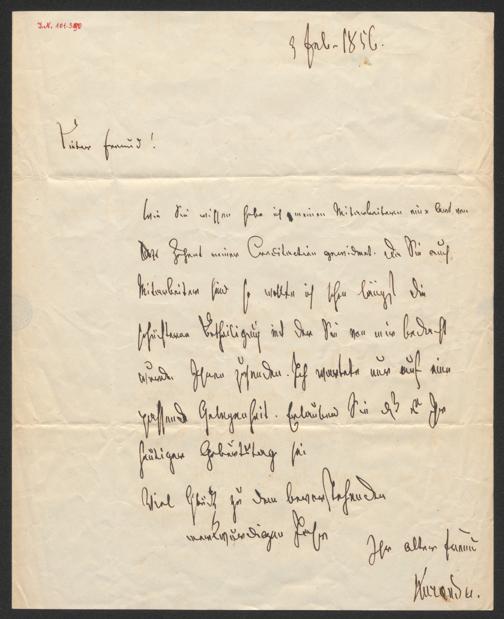 I.N. 101.380
3 Feb. 1856.
Guter Freund!
Wie Sie wissen habe ich meinen Mitarbeitern eine Art von
Zehent meiner gewidmet. Da Sie auch
Mitarbeiter sind so wollte ich schon längst die
Betheiligung mit der Sie von mir bedacht
wurden Ihnen zusenden. Ich wartete nur auf eine
passende Gelegenheit. Erlauben Sie daß es Ihr
heutiger Geburtstag sei
Viel Glück zu dem bevorstehenden
merkwürdigen Jahr
Ihr alter Freund
Kuranda.